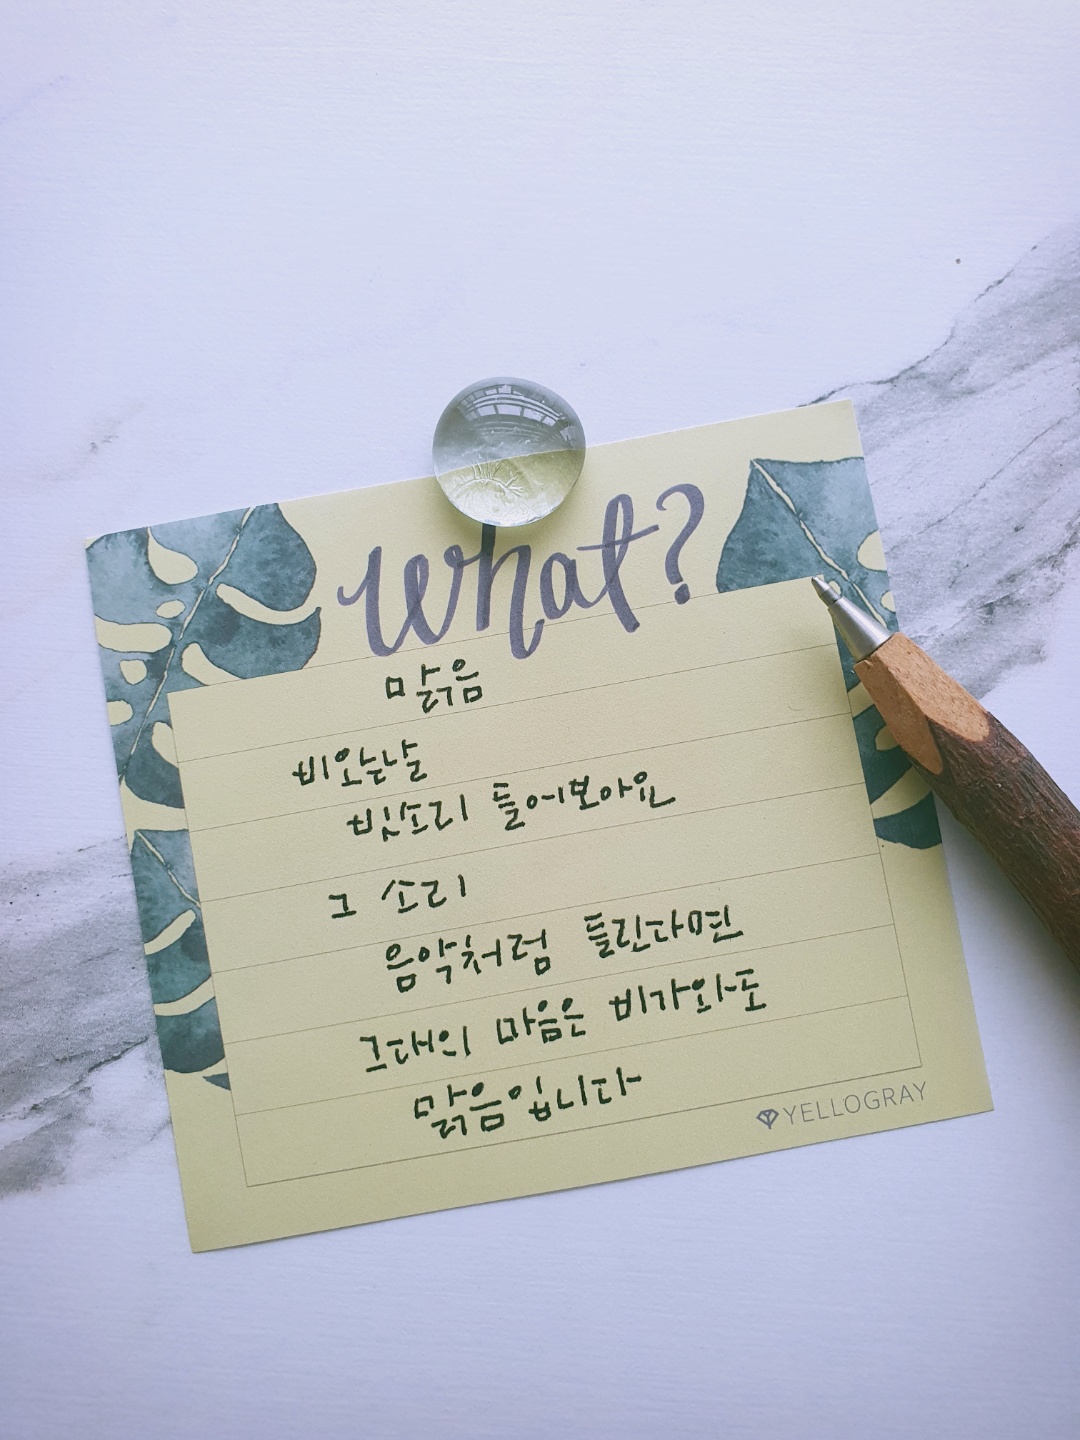 What?
맑음
비오는날
빗소리 들어보아요
그 소리
음악처럼 들린다면
그대의 마음은 비가와도
맑음입니다
YELLOGRAY